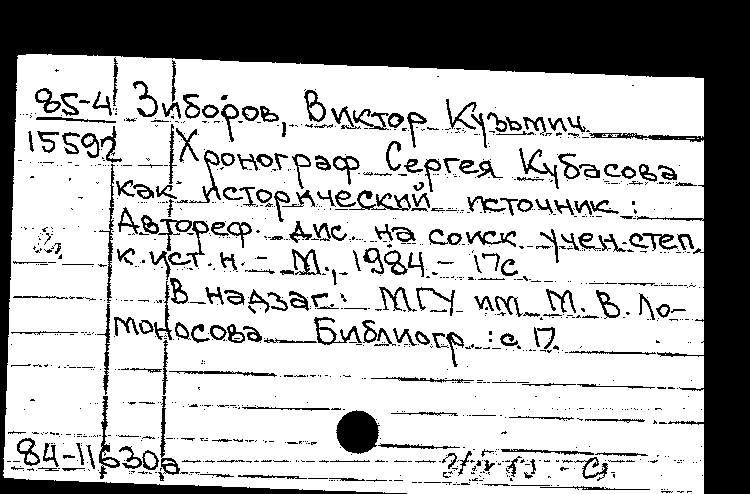 85-4 Зиборов, Виктор Кузьмич
15592 Хронограф Сергея Кубасова
как исторический источник :
Автореф. дис. на соиск. учен. степ.
к.ист.н. - М., 1984. - 17с.
В надзаг.: МГУ им. М. В. Ло-
моносова. Библиогр.: с. 17.
84-11630а